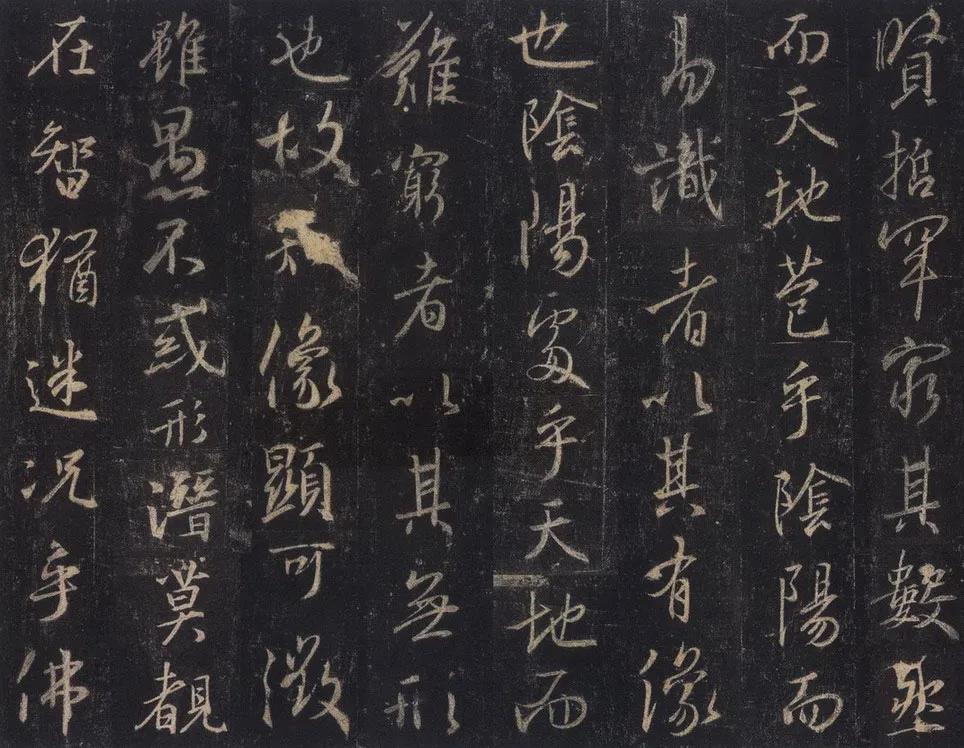 賢哲罕窮其數然
而天地苞乎陰陽而
易識者以其有像
也陰陽處乎天地而
難窮者以其無形
也故知像顯可徵
雖愚不惑形潛莫覩
在智猶迷況乎佛